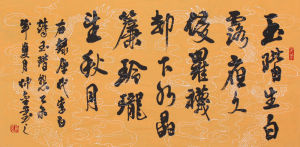 玉階生白
露夜久
侵羅襪
却下水晶
簾玲瓏
望秋月
右錄唐代李白
詩玉階怨